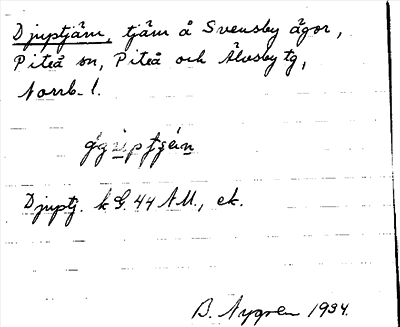 Djuptjärn, tjärn å Svensby ägor,
Piteå sn, Piteå och Älvsby tg,
Norrb. l.
Djuptj. k G. 44 AM., ek.
B. Nygren 1934.